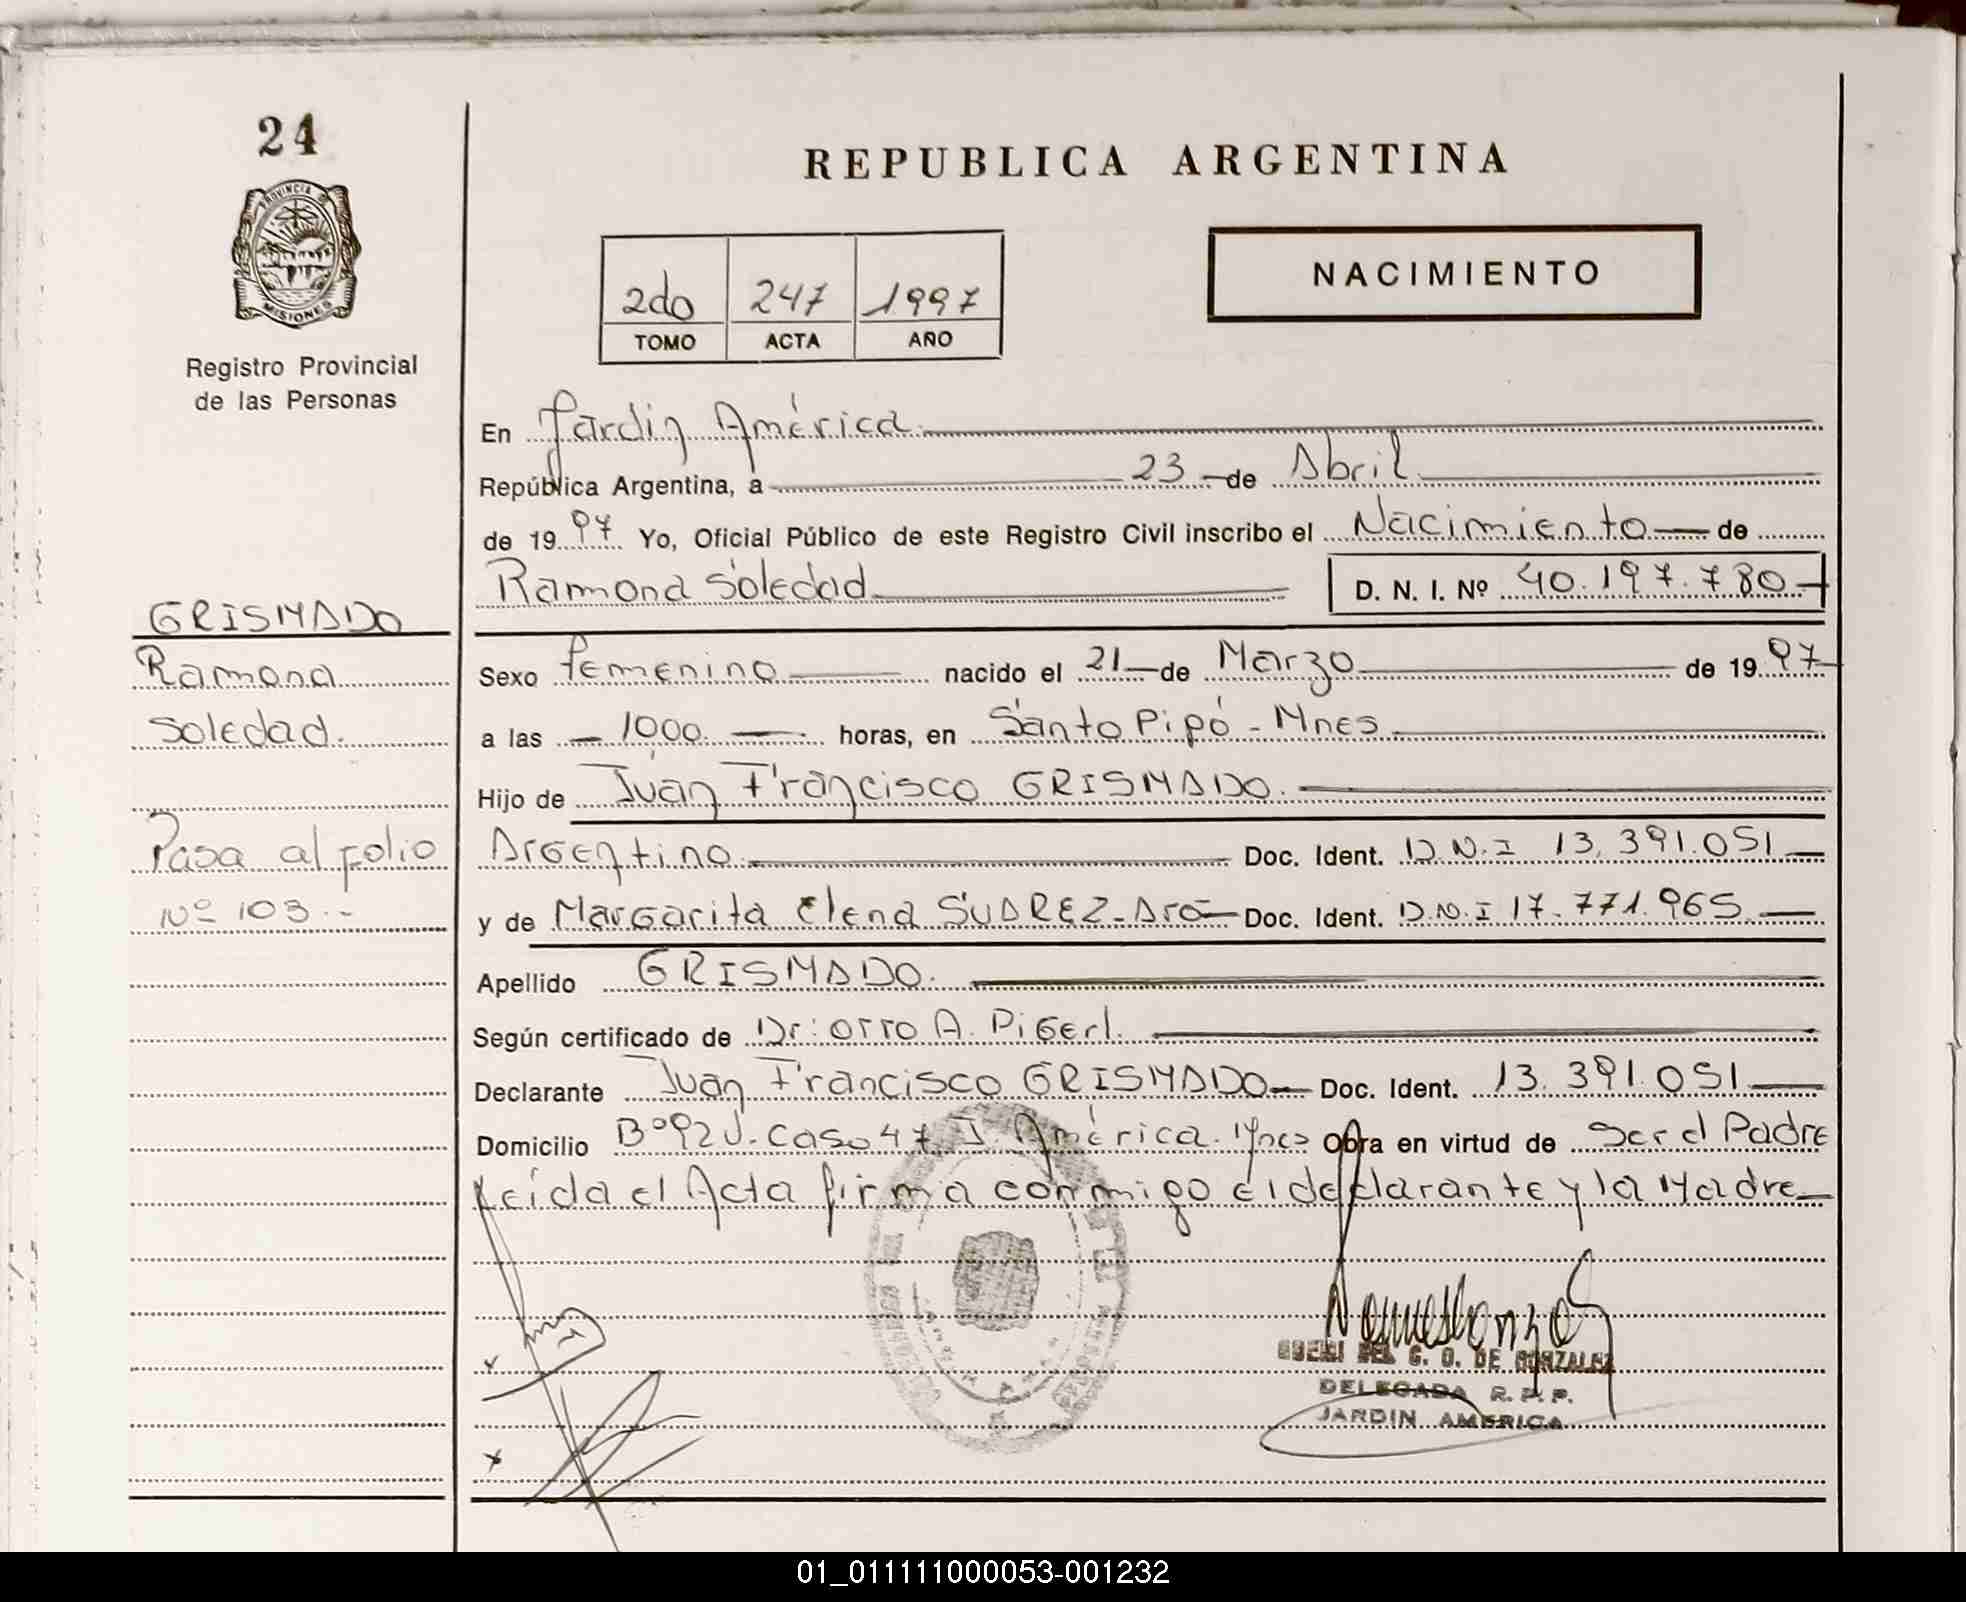 24
PROVINCIA
MISIONES
Registro Provincial
de las Personas
GRISMADO
Ramona
Soledad.
Pasa al folio
Nº 103.-
REPUBLICA ARGENTINA
NACIMIENTO
2do 247 1997
TOMO ACTA AÑO
En Jardin América.
República Argentina, a 23 de Abril
de 1997 Yo, Oficial Público de este Registro Civil inscribo el Nacimiento de
Ramona Soledad D. N. I. Nº 40.197.780
Sexo femenino nacido el 21 de Marzo de 1997
a las 1000 horas, en Santo Pipó - Mnes
Hijo de Juan Francisco GRISMADO.
Argentino Doc. Ident. D.N.I 13.391.051
y de Margarita Elena SUAREZ - Arg Doc. Ident. D.N.I 17.771.965
Apellido GRISMADO.
Según certificado de Dr: OTTO A. Pigerl.
Declarante Juan Francisco GRISMADO Doc. Ident. 13.391.051
Domicilio Bº 92 V. Casa 47 J. América. Mnes Obra en virtud de Ser el Padre
Leída el Acta firma conmigo el declarante y la Madre
DEL C. O. DE GONZALEZ
DELEGADA R. P. P.
JARDIN AMERICA
01_011111000053-001232